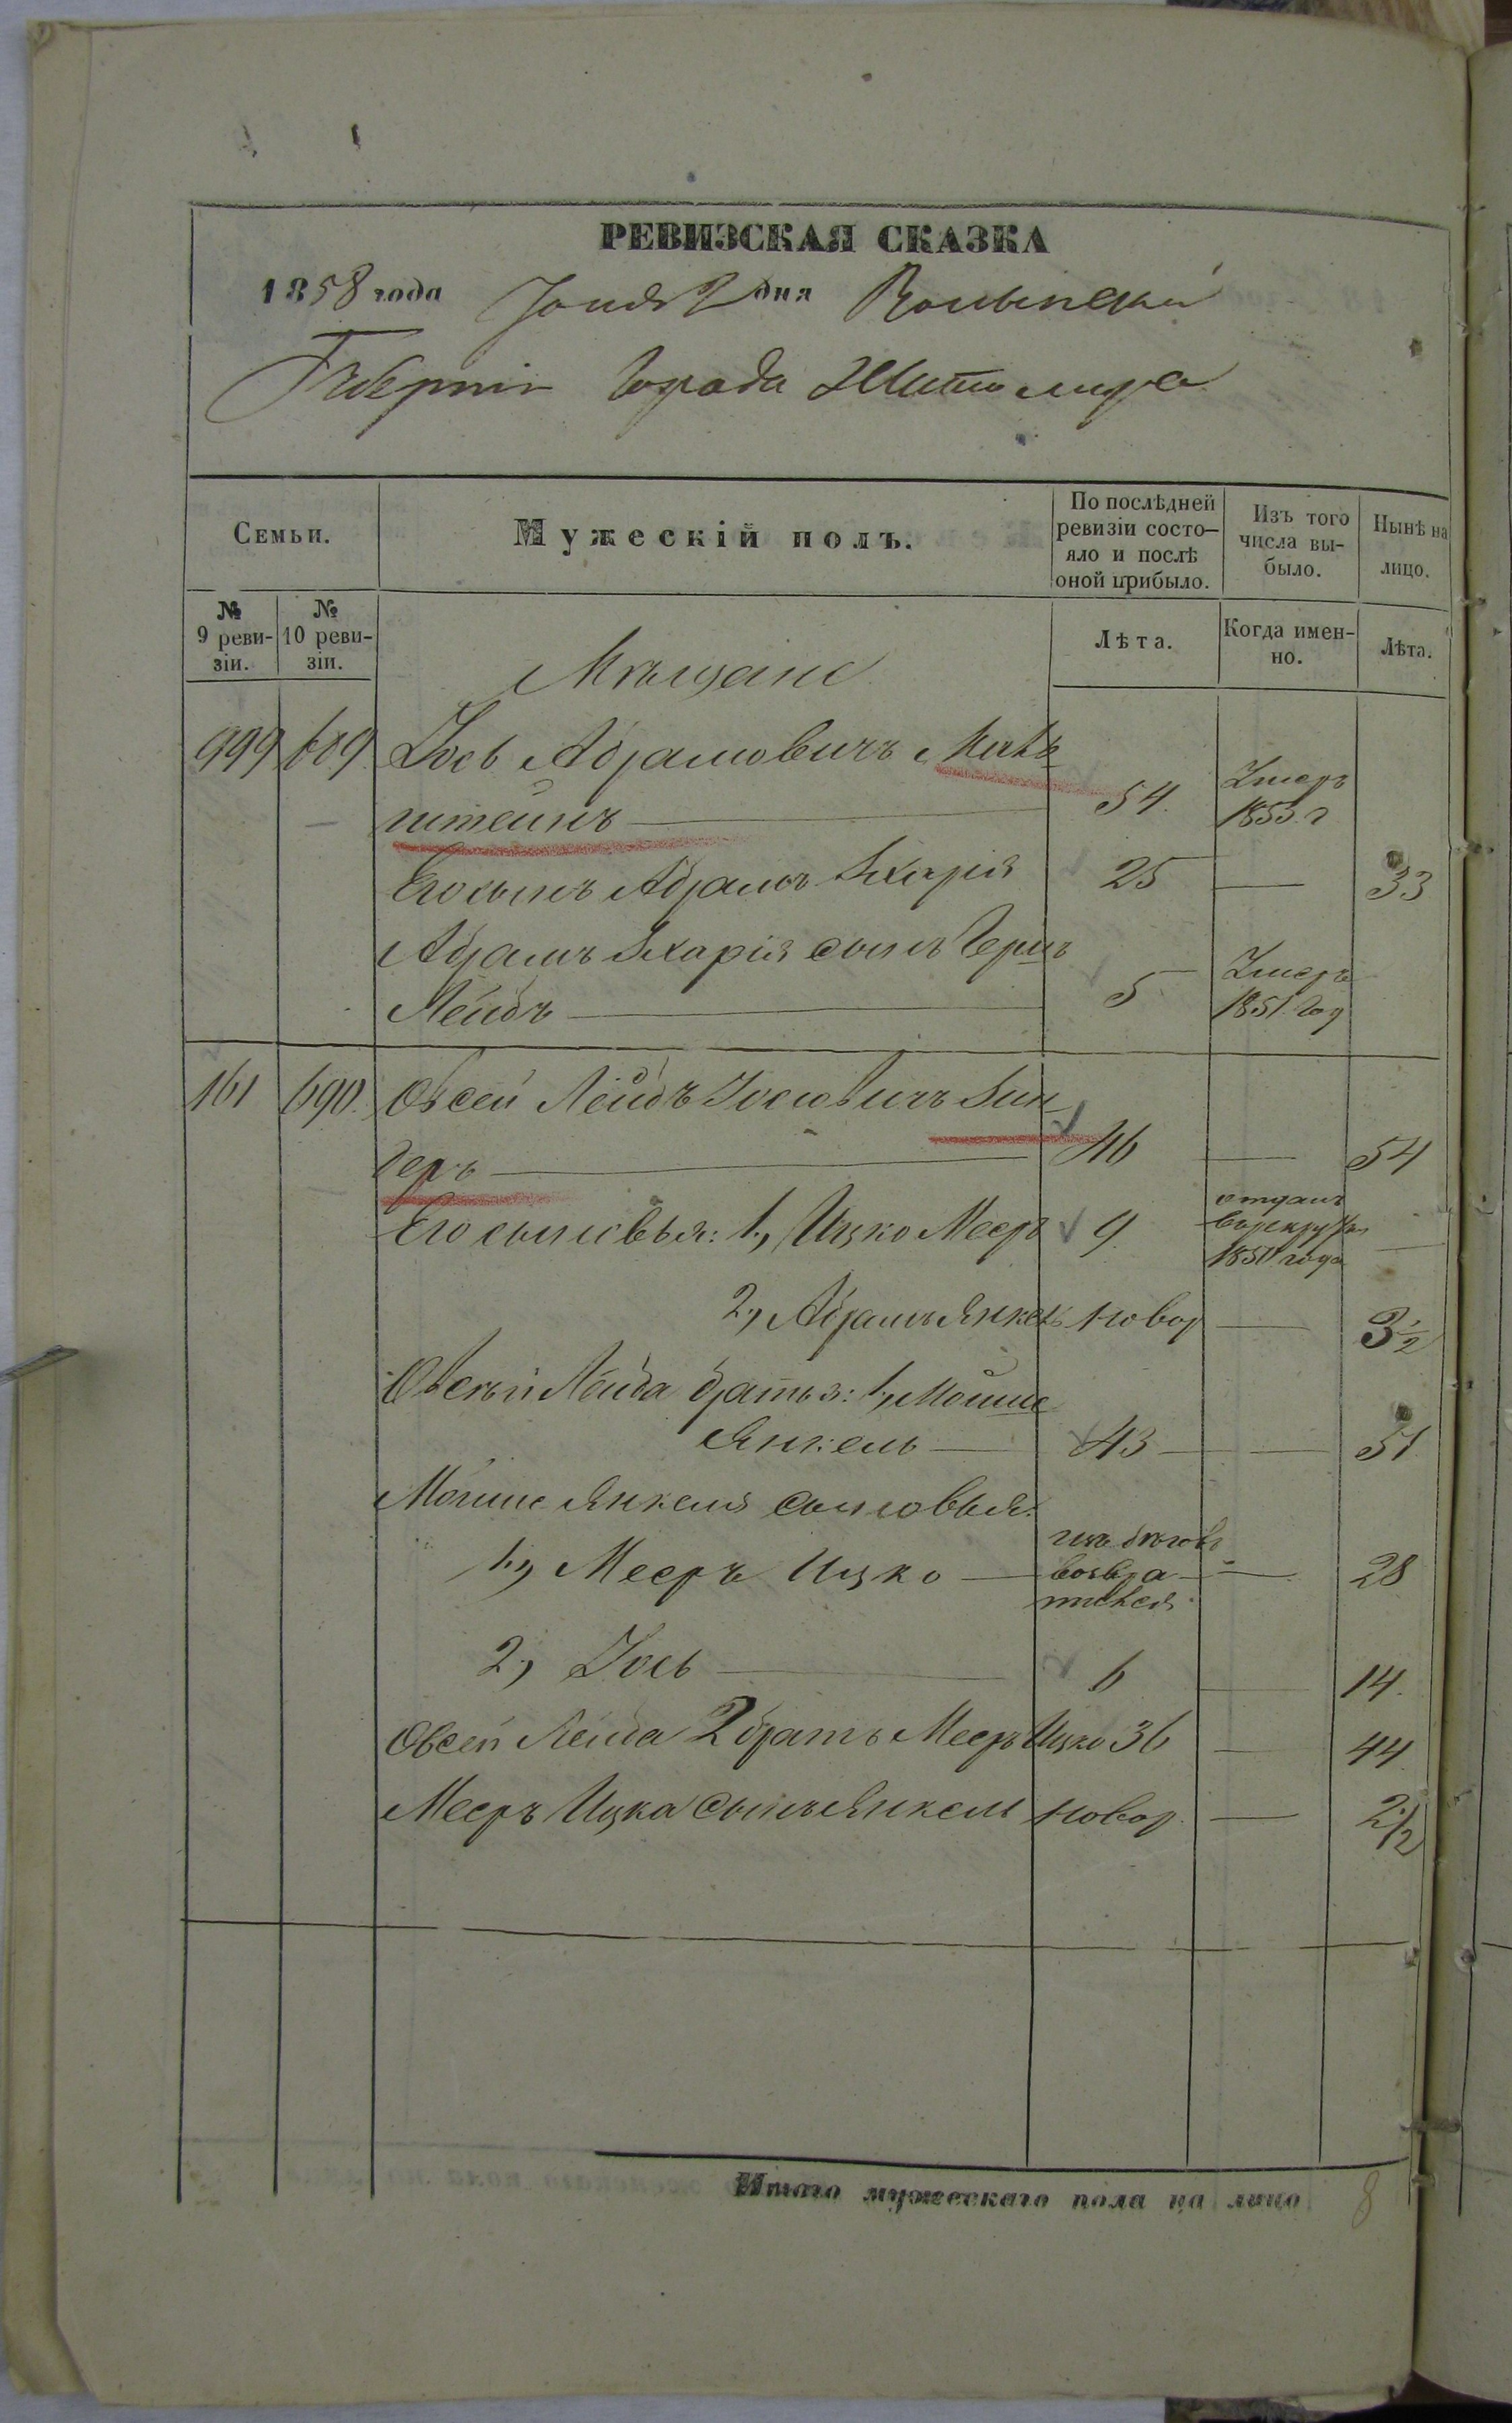 РЕВИЗСКАЯ СКАЗКА
1858 года Іюня 2 дня Волынской
Губерніи Города Житомира
Семьи.
Мужескій полъ.
По послѣдней ревизіи состо-
яло и послѣ оной прибыло.
Изъ того числа вы-
было.
Нынѣ на лицо.
№ 9 реви-
зіи.
№ 10 реви-
зіи.
Лѣта.
Когда имен-
но.
Лѣта.
Мѣщане
999 689 Іось Абрамовичъ
штейнъ 54. Умеръ 1853. г
Его сынъ Абрамъ Схарія 25 — 33
Абрамъ Схарія сынъ Герш
Лейбъ 5 Умеръ 1851. год
161 690. Овсей Лейбъ Іосіовичъ Зин
геръ 46 — 54
Его сыновья: 1., Ицко Мееръ 9. отданъ
в рекруты
1851 года —
2., Абрамъ Янкель новор — 3 1/2
Овсѣй Лейба братья: 1, Мошко
Янкель — 43 — — 51
Мошко Янкеля сыновья:
1., Мееръ Ицко — изъ бѣговъ
возвра-
тился — 28
2., Іось — 6 — 14.
Овсей Лейба 2 братъ Мееръ Ицко 36 — 44.
Мееръ Ицка сынъ Янкель новор. — 2 1/2
Итого мужескаго пола на лицо 8